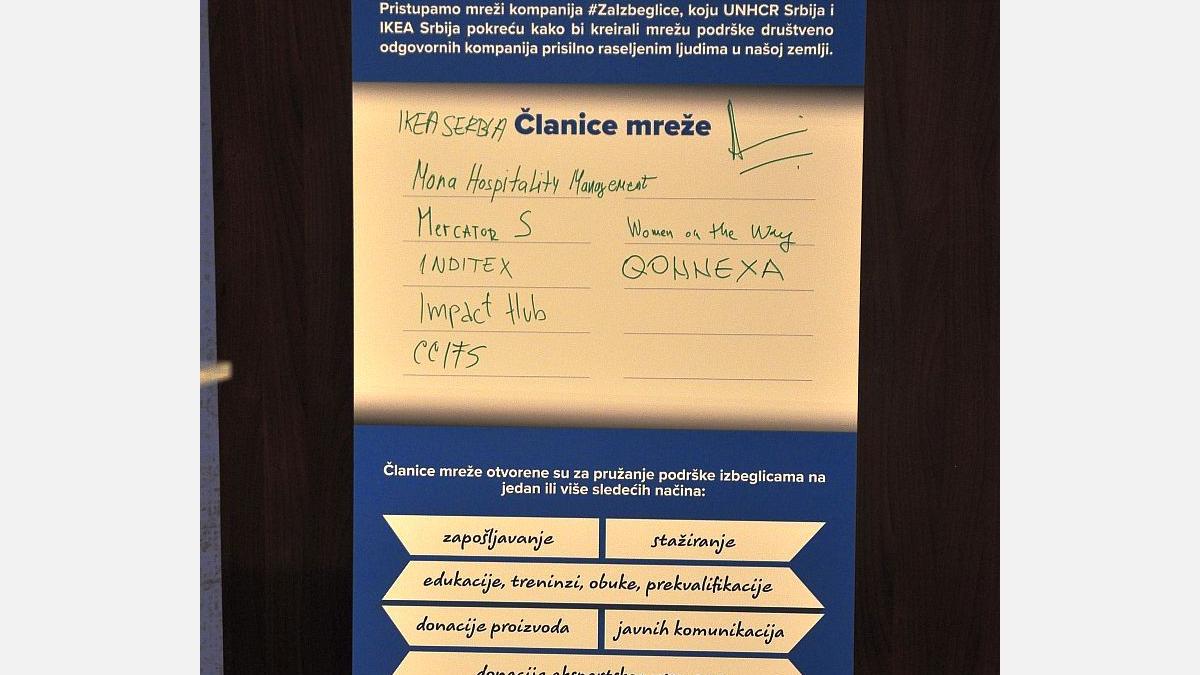 Pristupamo mreži kompanija #ZaIzbeglice, koju UNHCR Srbija i
IKEA Srbija pokreću kako bi kreirali mrežu podrške društveno
odgovornih kompanija prisilno raseljenim ljudima u našoj zemlji.
IKEA SERBIA Članice mreže
Mona Hospitality Management
Mercator S
Women on the Way
INDITEX
QONNEXA
Impact Hub
CCIFS
Članice mreže otvorene su za pružanje podrške izbeglicama na
jedan ili više sledećih načina:
zapošljavanje
stažiranje
edukacije, treninzi, obuke, prekvalifikacije
donacije proizvoda
javnih komunikacija